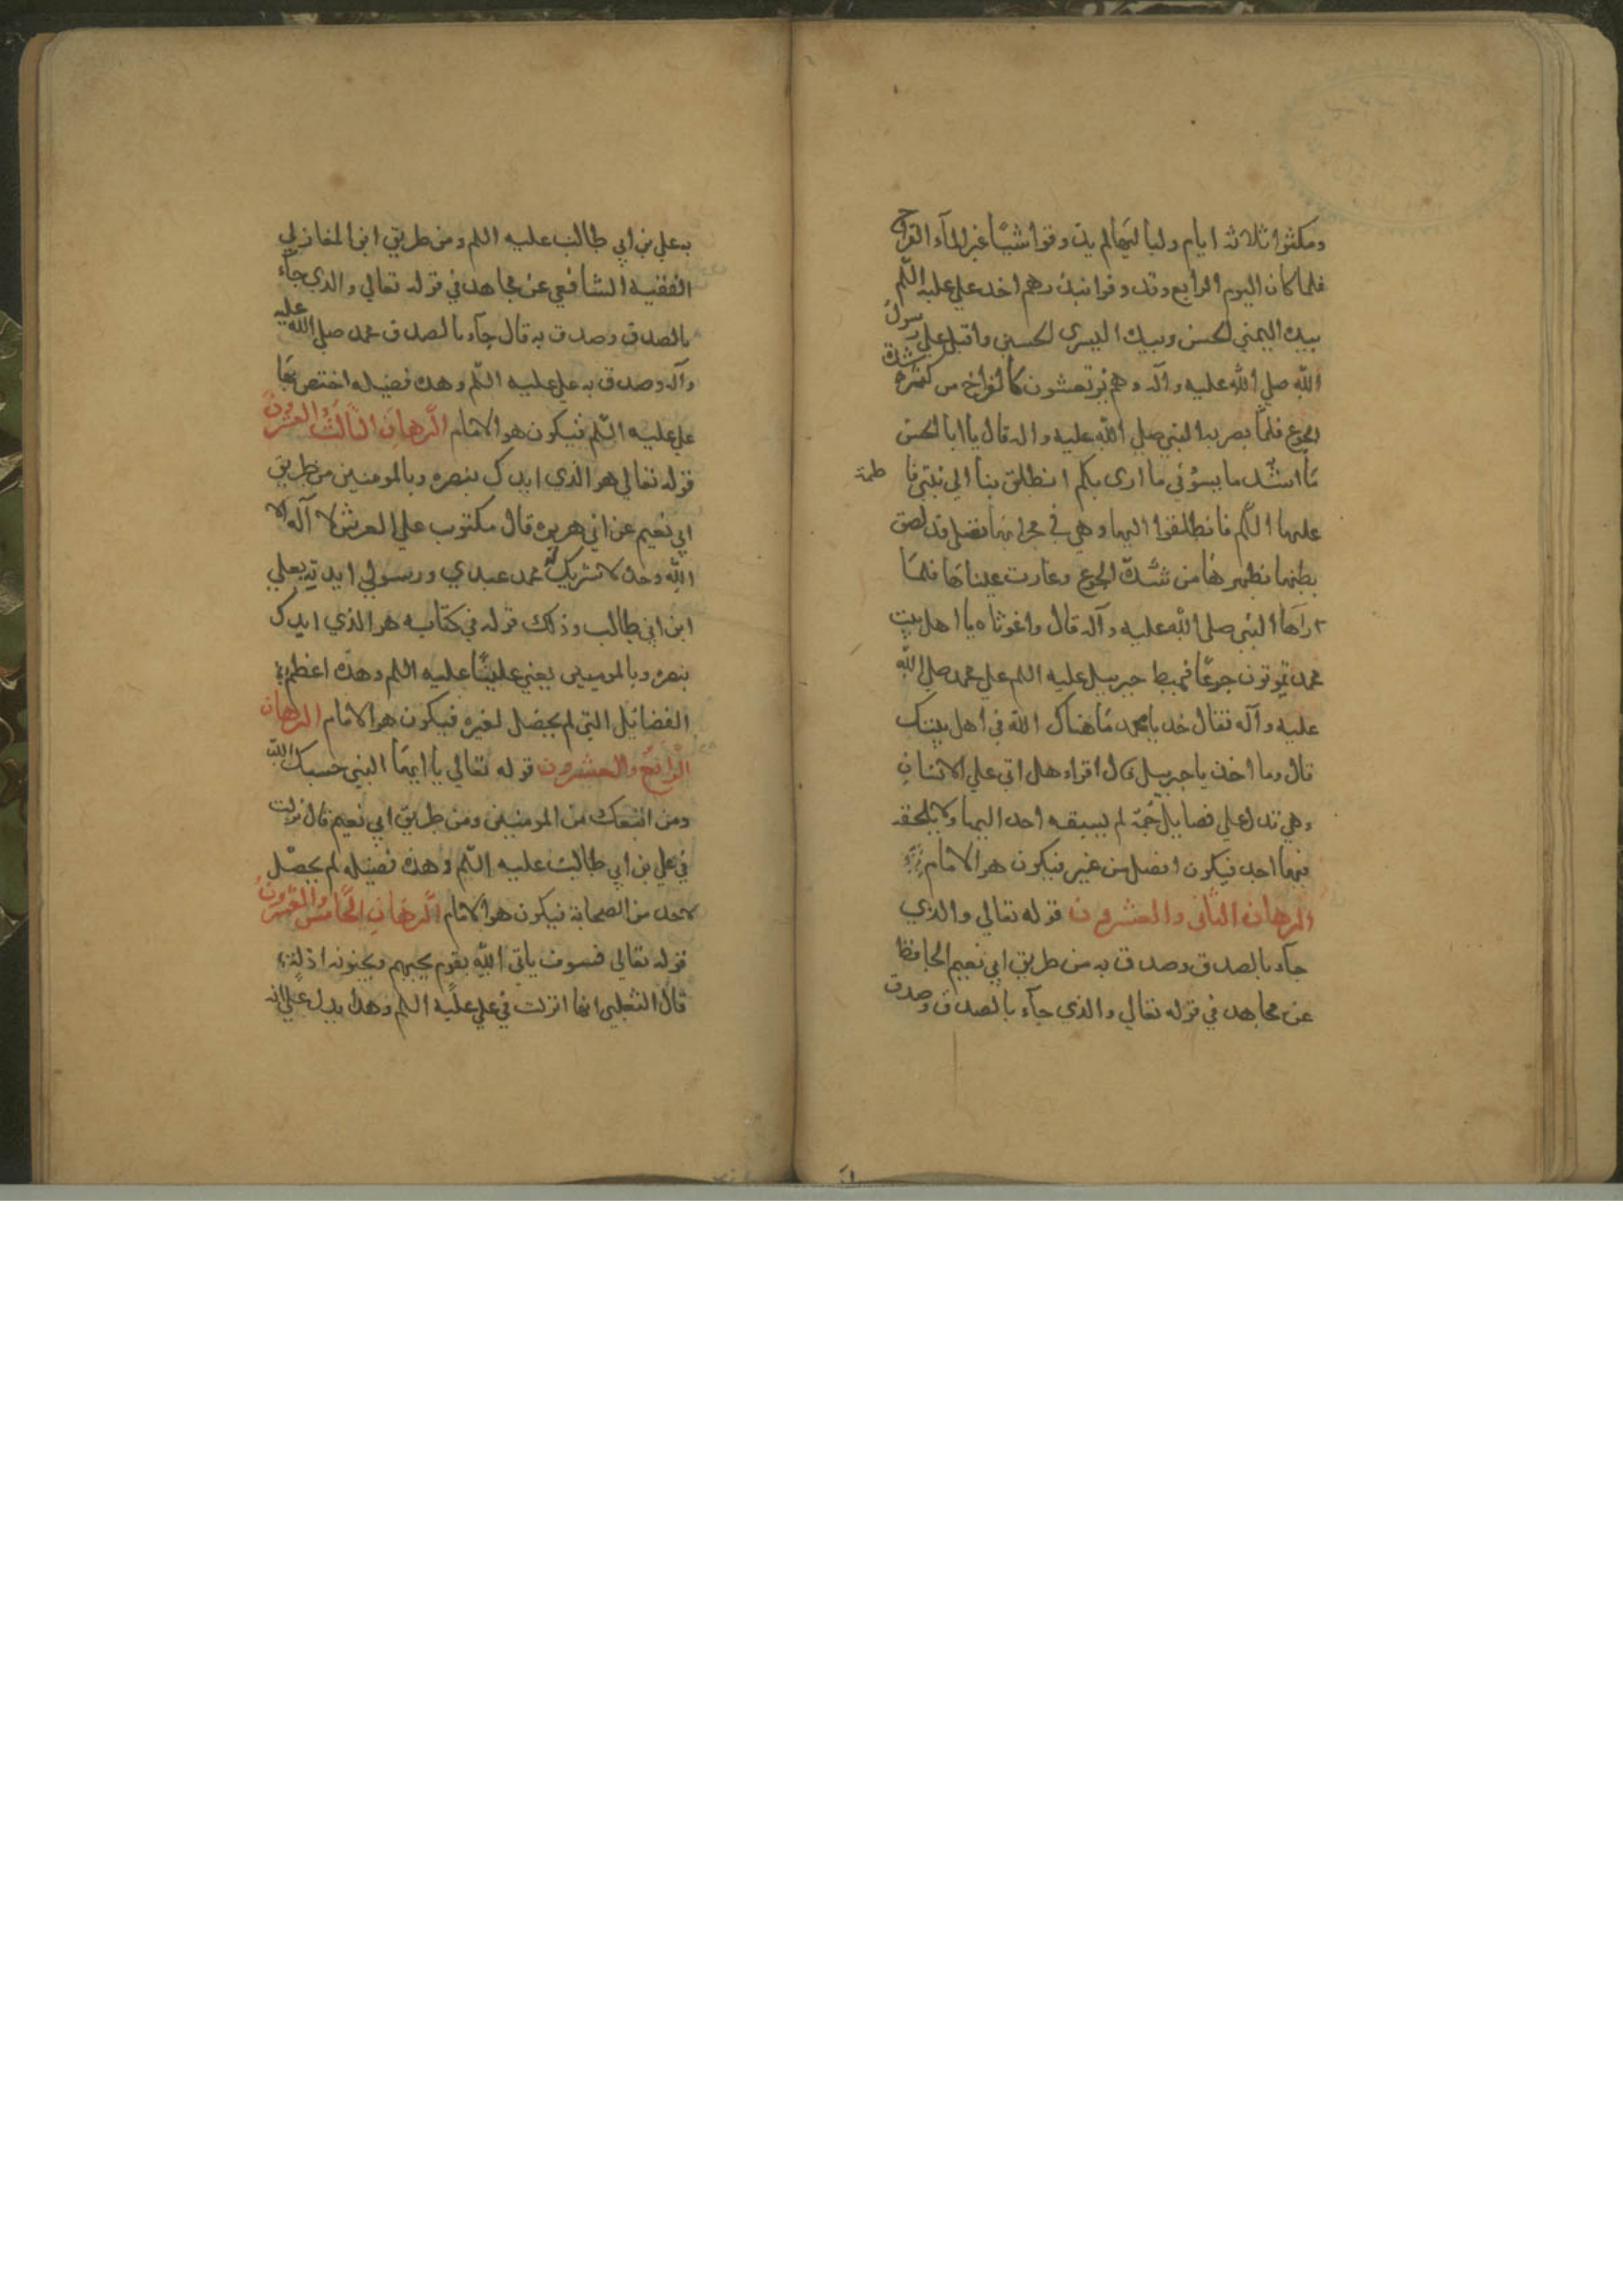 ومكثوا ثلاثة ايام ولياليها لم يذوقوا شيئا غير الماء القراح
فلما كان اليوم الرابع وقد وفوا نذرهم اخذ علي عليه السلم
بيده اليمني الحسن وبيده اليسرى الحسين واقبل علي رسول
الله صلي الله عليه وآله وهم يرتعشون كالفراخ من شدة
الجوع فلما بصر به النبي صلي الله عليه واله قال يا ابا الحسن
ما اشد ما يسوئني ما ارى بكم انطلق بنا الي ابنتي فاطمة
عليها السلم فانطلقوا اليها وهي في محرابها تصلي قد لصق
بطنها بظهرها من شدة الجوع وغارت عيناها فلما
رآها النبي صلي الله عليه وآله قال واغوثاه يا اهل بيت
محمد تموتون جوعا فهبط جبرييل عليه السلم علي محمد صلي الله
عليه وآله فقال خذ يا محمد ما هناك الله في اهل بيتك
قال وما اخذ يا جبرييل قال اقراء هل اتي علي الانسان
وهي تدل علي فضايل جمة لم يسبقه احد اليها ولا يلحقه
فيها احد فيكون افضل من غيره فيكون هو الامام
البرهان الثاني والعشرون قوله تعالي والذي
جاء بالصدق وصدق به من طريق ابي نعيم الحافظ
عن مجاهد في قوله تعالي والذي جاء بالصدق وصدق
به علي بن ابي طالب عليه السلم ومن طريق ابن المغازلي
الفقيه الشافعي عن مجاهد في قوله تعالي والذي جاء
بالصدق وصدق به قال جاء بالصدق محمد صلي الله عليه
وآله وصدق به علي عليه السلم وهذه فضيله اختص بها
علي عليه السلم فيكون هو الامام البرهان الثالث والعشرون
قوله تعالي هو الذي ايدك بنصره وبالمومنين من طريق
ابي نعيم عن ابي هريره قال مكتوب علي العرش لا آله الا
الله وحده لا شريك له محمد عبدي ورسولي ايدته بعلي
ابن ابي طالب وذلك قوله في كتابه هو الذي ايدك
بنصره وبالمومنين يعني عليا عليه السلم وهذه اعظم
الفضايل التي لم يحصل لغيره فيكون هو الامام البرهان
الرابع والعشرون قوله تعالي يا ايها النبي حسبك الله
ومن اتبعك من المومنين ومن طريق ابي نعيم قال نزلت
في علي بن ابي طالب عليه السلم وهذه فضيله لم يحصل
لاحد من الصحابة فيكون هو الامام البرهان الخامس والعشرون
قوله تعالي فسوف ياتي الله بقوم يحبهم ويحبونه اذلة
قال الثعلبي انها انزلت في علي عليه السلم وهذا يدل علي انه